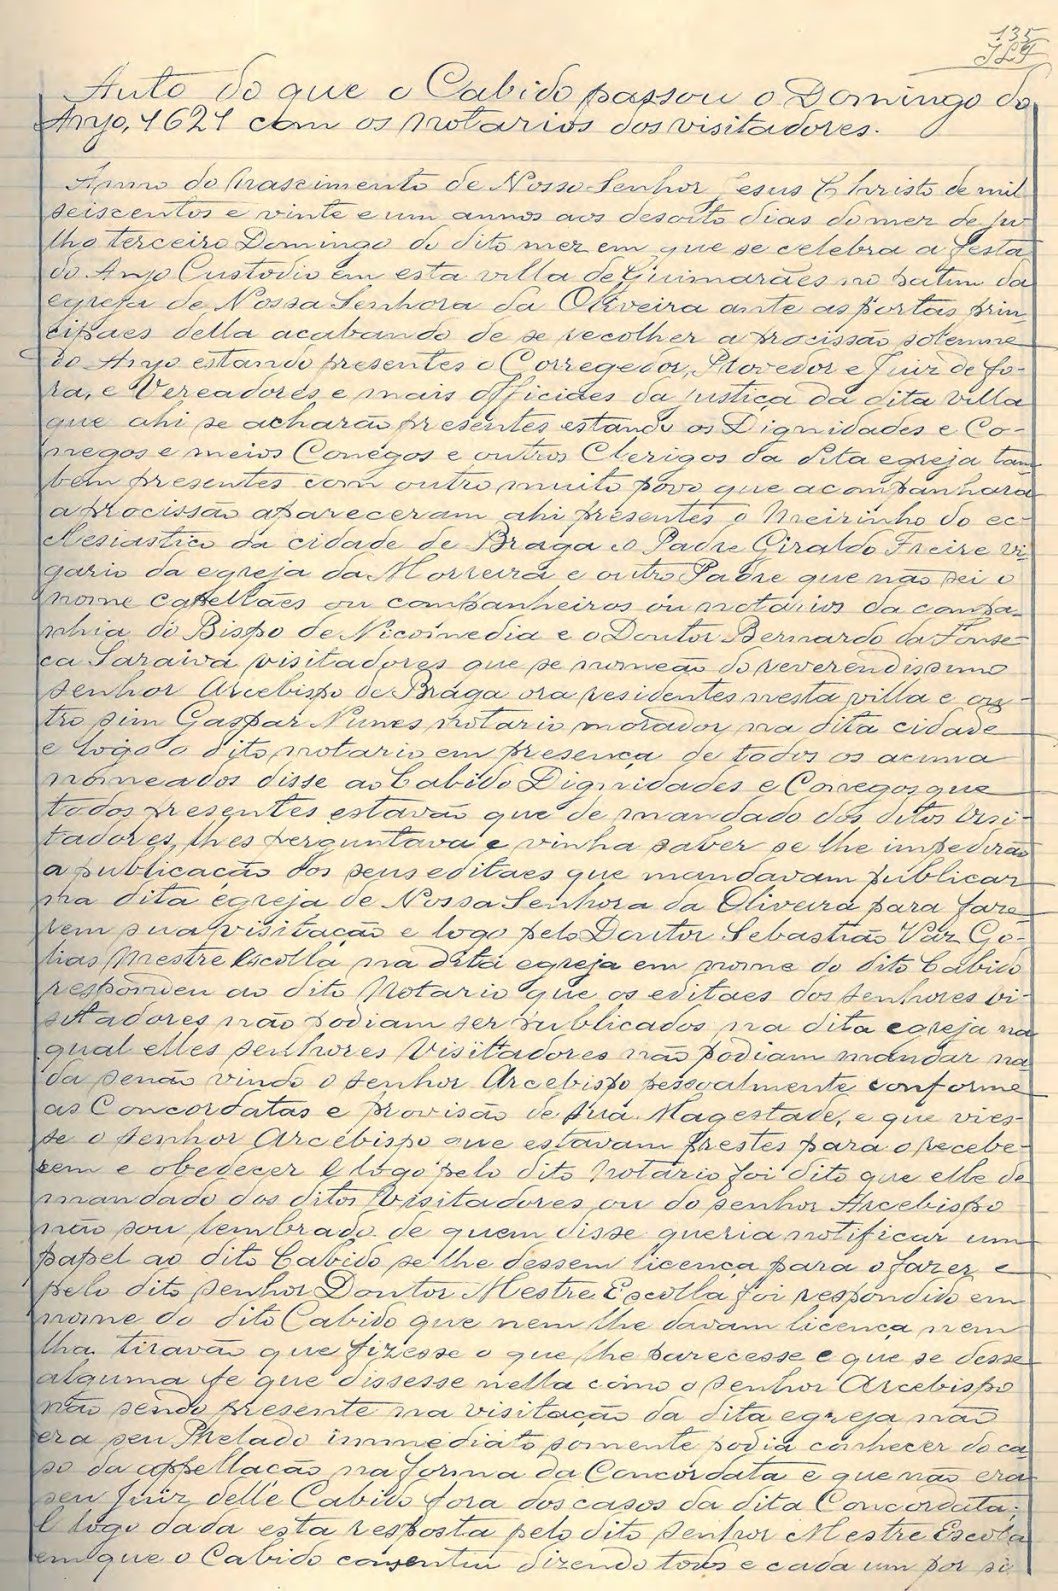 135
Auto do que o Cabido passou o Domingo do
Anjo, 1621 com os notarios dos visitadores.
Anno do Nascimento de Nosso Senhor Jesus Christo de mil
seiscentos e vinte e um annos aos desoito dias do mez de Ju-
lho terceiro Domingo do dito mez em que se celebra a festa
do Anjo Custodio em esta villa de Guimarães no patim da
egreja de Nossa Senhora da Oliveira ante as portas prin-
cipaes della acabando de se recolher a procissão solemne
do Anjo estando presentes o Corregedor, Provedor e Juiz de fo-
ra, e Vereadores e mais officiaes da justiça da dita villa
que ahi se acharão presentes estando os Dignidades e Co-
negos e meios Conegos e outros Clerigos da dita egreja tam
bem presentes com outro muito povo que acompanhara
a procissão apareceram ahi presentes o Meirinho do ec-
clesiastico da cidade de Braga e o Padre Giraldo Freire vi-
gario da egreja da Morreira e outro Padre que não sei o
nome capellães ou companheiros ou notarios da compa-
nhia do Bispo de Nicomedia e o Doutor Bernardo da Fonse-
ca Saraiva visitadores que se nomeão do reverendissimo
senhor Arcebispo de Braga ora residentes nesta villa e ou-
tro sim Gaspar Nunes notario morador na dita cidade
e logo o dito notario em presença de todos os acima
nomeados disse ao Cabido Dignidades e Conegos que
todos presentes estavão que de mandado dos ditos Visi-
tadores, lhes perguntava e vinha saber se lhe impedirão
a publicação dos seus editaes que mandavam publicar
na dita egreja de Nossa Senhora da Oliveira para faze-
rem sua visitação e logo pelo Doutor Sebastião Vaz Go-
lias Mestre Escolla na dita egreja em nome do dito Cabido
respondeu ao dito Notario que os editaes dos senhores vi-
sitadores não podiam ser publicados na dita egreja na
qual elles senhores Visitadores não podiam mandar na
da senão vindo o senhor Arcebispo pessoalmente conforme
as Concordatas e provisão de sua Magestade, e que vies-
se o senhor Arcebispo que estavam prestes para o recebe-
rem e obedecer E logo pelo dito Notario foi dito que elle de
mandado dos ditos Visitadores ou do senhor Arcebispo
não sou lembrado de quem disse queria notificar um
papel ao dito Cabido se lhe dessem licença para o fazer e
pelo dito senhor Doutor Mestre Escolla foi respondido em
nome do dito Cabido que nem lhe davam licença nem
lha tiravão que fizesse o que lhe parecesse e que se desse
alguma fe que dissesse nella como o senhor Arcebispo
não sendo presente na visitação da dita egreja não
era seu Prelado immediato somente podia conhecer do ca-
so da appellação na forma da Concordata e que não era
seu Juiz delle Cabido fora dos casos da dita Concordata.
E logo dada esta resposta pelo dito senhor Mestre Escola
em que o Cabido consentiu dizendo todos e cada um por si